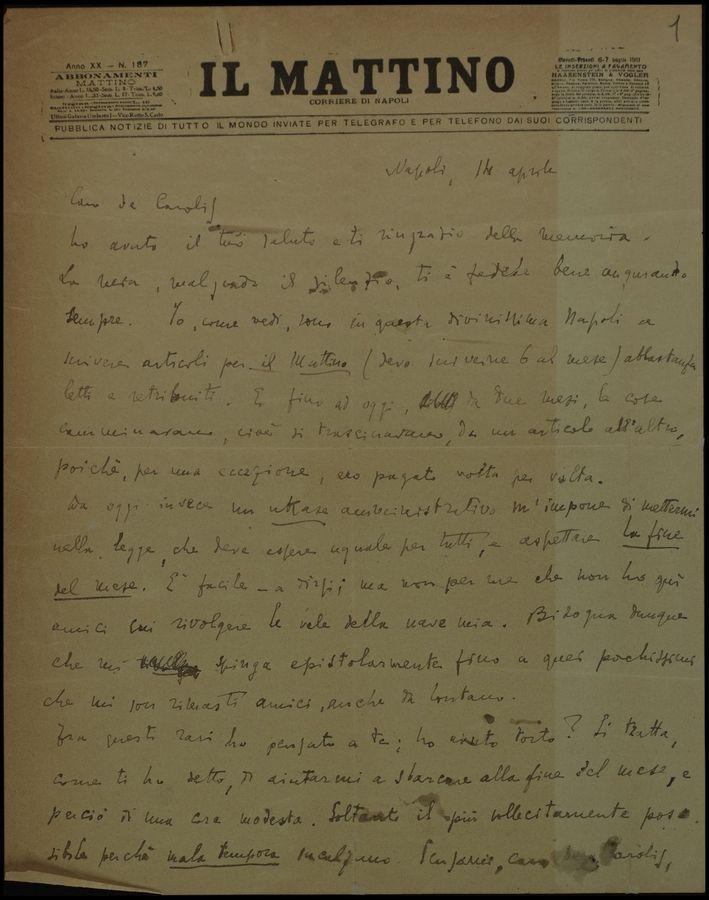 1
Anno XX — N. 187
ABBONAMENTI
MATTINO
IL MATTINO
CORRIERE DI NAPOLI
6-7 luglio 1911
LE INSERZIONI A PAGAMENTO
HAASENSTEIN & VOGLER
Uffici Galleria Umberto I — Vico Rotto S. Carlo
PUBBLICA NOTIZIE DI TUTTO IL MONDO INVIATE PER TELEGRAFO E PER TELEFONO DAI SUOI CORRISPONDENTI
Napoli, 14 aprile
Caro de Carolis
ho avuto il tuo saluto e ti ringrazio della memoria.
La mia, malgrado il silenzio, ti è fedele bene augurando
sempre. Io, come vedi, sono in questa divinissima Napoli a
scrivere articoli per il Mattino (devo scriverne 6 al mese) abbastanza
letti e retribuiti. E fino ad oggi, da due mesi, la cosa
camminavano, cioè si trascinavano, da un articolo all'altro,
poichè, per una eccezione, ero pagato volta per volta.
Da oggi invece un ukase amministrativo m'impone di mettermi
nella legge, che deve essere uguale per tutti, e aspettare la fine
del mese. È facile — a dirsi; ma non per me che non ho qui
amici cui rivolgere le vele della nave mia. Bisogna dunque
che mi spinga epistolarmente fino a quei pochissimi
che mi son rimasti amici, anche da lontano.
Fra questi rari ho pensato a te; ho avuto torto? Si tratta,
come ti ho detto, di aiutarmi a sbarcare alla fine del mese, e
perciò di una cosa modesta. Soltanto il più sollecitamente pos-
sibile perchè mala tempora incalzano. Pensami, caro de Carolis,